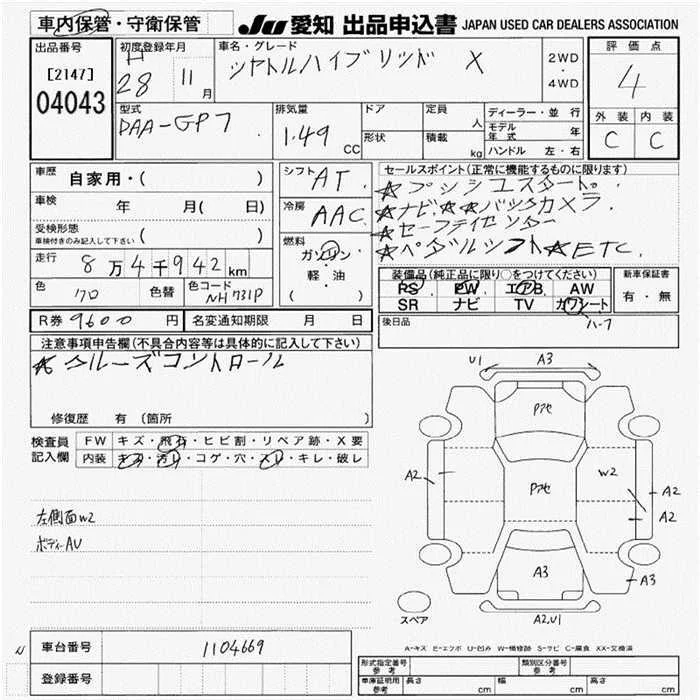 車内保管・守衛保管
JU 愛知 出品申込書 JAPAN USED CAR DEALERS ASSOCIATION
出品番号
[2147]
04043
初度登録年月
H
28 11 月
車名・グレード
シャトルハイブリッド X
2WD
・
4WD
評価点
4
外装 内装
C C
型式
DAA-GP7
排気量
1.49 CC
ドア
形状
定員 人
積載 kg
ディーラー・並行
モデル年式 年
ハンドル 左・右
車歴 自家用・( )
車検 年 月( 日)
受検形態
車検付きのみ記入して下さい ( )
走行 8万4千942km
色 クロ 色替 色コード NH731P
シフト AT
冷房 AAC
燃料
ガソリン
・
軽油
( )
セールスポイント(正常に機能するものに限ります)
☆プッシュスタート。
☆ナビ☆☆バックカメラ
☆セーフティセンサー
☆ペダルシフト☆ETC
装備品(純正品に限り○をつけてください)
PS PW エアB AW
SR ナビ TV カワシート
ハーフ
新車保証書
有・無
後日品
R券 9600 円 名変通知期限 月 日
注意事項申告欄(不具合内容等は具体的に記入して下さい)
☆クルーズコントロール
修復歴 有 (箇所 )
検査員記入欄
FW キズ・飛石・ヒビ割・リペア跡・X要
内装 キズ・汚レ・コゲ・穴・スレ・キレ・破レ
左側面W2
ボディーAU
U1 A3
Pアセ
A2 Pアセ W2 A2
A2
A3 A3
スペア A2,U1
A-キズ E-エクボ U-凹み W-補修跡 S-サビ C-腐食 XX-交換済
N
車台番号 1104669
登録番号
形式指定番号 参考
類別区分番号 参考
車庫証明用 参考 長さ cm 幅 cm 高さ cm